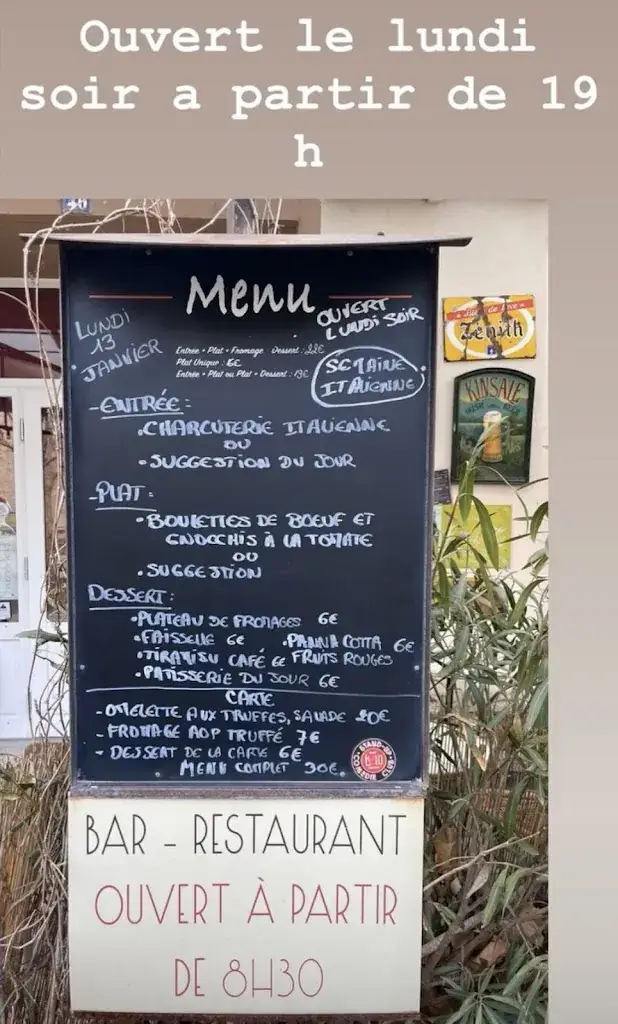 Ouvert le lundi
soir a partir de 19
h
Menu
OUVERT
LUNDI SOIR
LUNDI
13
JANVIER
Entrée + Plat + Fromage
Dessert : 22€
Plat Unique :
Entrée + Plat ou Plat + Dessert :
SEMAINE
ITALIENNE
-ENTRÉE:
•CHARCUTERIE ITALIENNE
OU
•SUGGESTION DU JOUR
-PLAT:
•BOULETTES DE BOEUF ET
GNOCCHIS À LA TOMATE
OU
•SUGGESTION
DESSERT:
•PLATEAU DE FROMAGES 6€
•FAISSELLE 6€ •PANNA COTTA 6€
•TIRAMISU CAFÉ 6€ FRUITS ROUGES
•PATISSERIE DU JOUR 6€
CARTE
- OMELETTE AUX TRUFFES, SALADE 20€
- FROMAGE AOP TRUFFÉ 7€
- DESSERT DE LA CARTE 6€
MENU COMPLET 30€
STAND-UP
COMEDIE CLUB
BAR - RESTAURANT
OUVERT À PARTIR
DE 8H30
Zenith
KINSALE
IRISH BEER